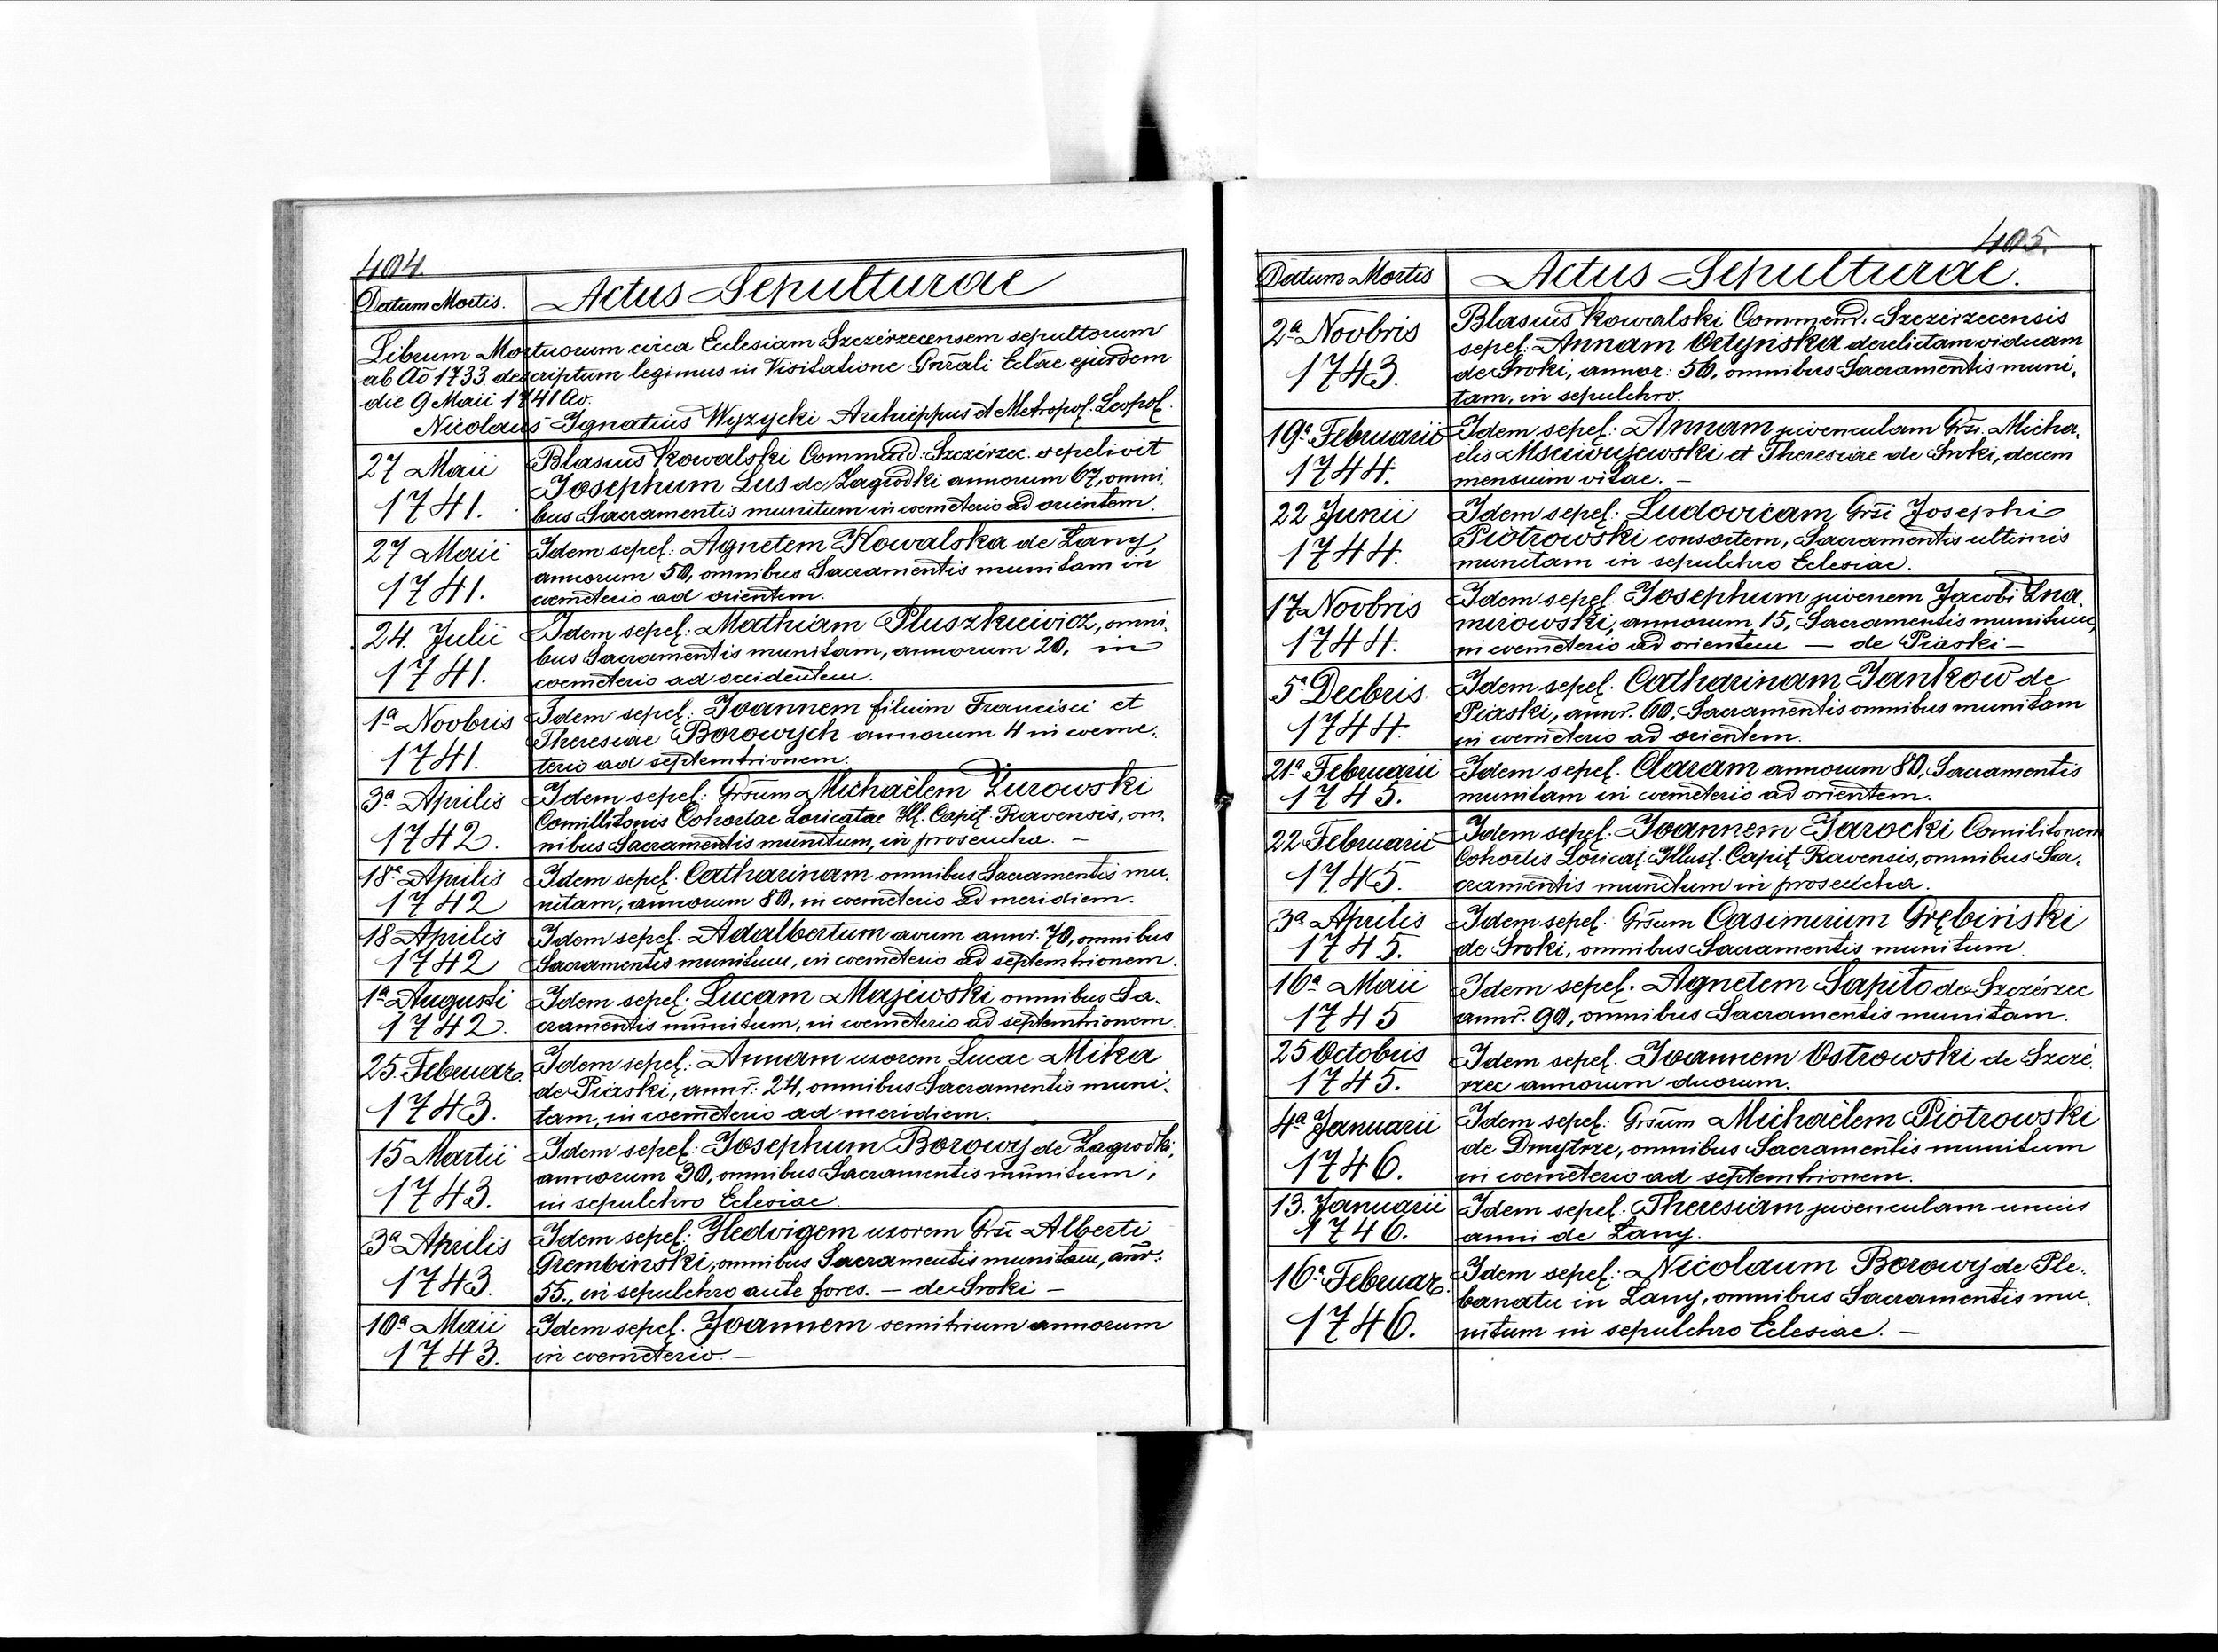 404.
Datum Mortis. Actus Sepulturae
Librum Mortuorum circa Ecclesiam Szczérzecensem sepultorum
ab Ao 1733. descriptum legimus in Visitatione Gnrali Eclae ejusdem
die 9 Maii 1741 Ao.
Nicolaus Ignatius Wyzycki Archieppus et Metropol. Leopol.
27 Maii Blasius Kowalski Commend: Szczérzec. sepelivit
Josephum Lus de Zagrodki annorum 67, omni,
1741. bus Sacramentis munitum in coemeterio ad orientem.
27 Maii Idem sepel: Agnetem Kowalska de Lany,
annorum 50, omnibus Sacramentis munitam in
1741. coemeterio ad orientem.
24. Julii Idem sepel: Mathiam Pluszkiewicz, omni,
bus Sacramentis munitam, annorum 20, in
1741. coemeterio ad occidentem.
1a Novbris Idem sepel: Joannem filium Francisci et
Theresiae Borowych annorum 4 in coeme,
1741. terio ad septemtrionem.
3a Aprilis Idem sepel: Grsum Michaëlem Żurowski
Comillitonis Cohortae Loricatae Ill. Capit. Ravensis, om,
1742. nibus Sacramentis munitum, in proseucha. –
18a Aprilis Idem sepel. Catharinam omnibus Sacramentis mu,
1742 nitam, annorum 80, in coemeterio ad meridiem.
18 Aprilis Idem sepel. Adalbertum avum annr. 70, omnibus
1742 Sacramentis munitum, in coemeterio ad septemtrionem.
1a Augusti Idem sepel: Lucam Majewski omnibus Sa,
1742. cramentis munitum, in coemeterio ad septemtrionem.
25. Februar. Idem sepel: Annam uxorem Lucae Mika
de Piaski, annr: 24, omnibus Sacramentis muni,
1743. tam, in coemeterio ad meridiem.
15 Martii Idem sepel: Josephum Borowy de Zagrodki,
annorum 30, omnibus Sacramentis munitum,
1743. in sepulchro Eclesiae
3a Aprilis Idem sepel: Hedvigem uxorem Grsi Alberti
Grembinski, omnibus Sacramentis munitam, anr:
1743. 55., in sepulchro ante fores. – de Sroki –
10a Maii Idem sepel. Joannem semitrium annorum
1743. in coemeterio. –
405.
Datum Mortis Actus Sepulturae.
2a Novbris Blasius Kowalski Commend. Szczérzecensis
sepel: Annam Ortyńska derelictam viduam
1743. de Sroki, annor: 50, omnibus Sacramentis muni,
tam, in sepulchro.
19a Februarii Idem sepel: Annam juvenculam Grsi. Micha,
elis Msciwujewski et Theresiae de Sroki, decem
1744. mensium vitae. –
22 Junii Idem sepel: Ludovicam Grsi Josephi
Piotrowski consortem, Sacramentis ultimis
1744. munitam in sepulchro Eclesiae.
17 Novbris Idem sepel. Josephum juvenem Jacobi Zna,
mirowski, annorum 15, Sacramentis munitum,
1744. in coemeterio ad orientem – de Piaski –
5a Decbris Idem sepel. Catharinam Jankow de
Piaski, annr. 60, Sacramentis omnibus munitam
1744. in coemeterio ad orientem.
21a Februarii Idem sepel. Claram annorum 80, Sacramentis
1745. munitam in coemeterio ad orientem.
22 Februarii Idem sepel. Joannem Jarocki Comilitonem
Cohortis Loricat. Illust. Capit Ravensis, omnibus Sa,
1745. cramentis munitum in proseucha.
3a Aprilis Idem sepel: Grsum Casimirum Grębiński
1745. de Sroki, omnibus Sacramentis munitum
16a Maii Idem sepel. Agnetem Sapito de Szczérzec
1745 annr. 90, omnibus Sacramentis munitam.
25 Octobris Idem sepel. Joannem Ostrowski de Szczé,
1745. rzec annorum duorum.
4a Januarii Idem sepel: Grsum Michaëlem Piotrowski
de Dmytrze, omnibus Sacramentis munitum
1746. in coemeterio ad septemtrionem.
13. Januarii Idem sepel. Theresiam juvenculam unius
1746. anni de Lany.
16a Februar. Idem sepel: Nicolaum Borowy de Ple,
banatu in Lany, omnibus Sacramentis mu,
1746. nitum in sepulchro Eclesiae. –